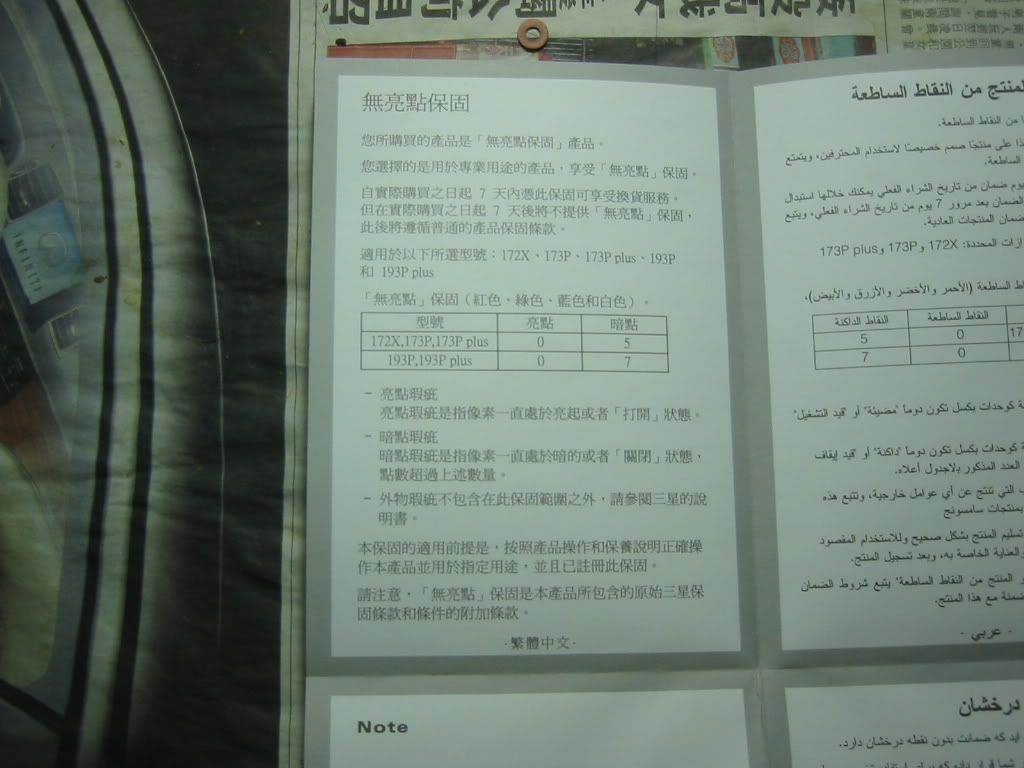 無亮點保固
您所購買的產品是「無亮點保固」產品。
您選擇的是用於專業用途的產品，享受「無亮點」保固。
自實際購買之日起 7 天內憑此保固可享受換貨服務。
但在實際購買之日起 7 天後將不提供「無亮點」保固，
此後將遵循普通的產品保固條款。
適用於以下所選型號：172X、173P、173P plus、193P
和 193P plus
「無亮點」保固（紅色、綠色、藍色和白色）。
型號 亮點 暗點
172X,173P,173P plus 0 5
193P,193P plus 0 7
- 亮點瑕疵
亮點瑕疵是指像素一直處於亮起或者「打開」狀態。
- 暗點瑕疵
暗點瑕疵是指像素一直處於暗的或者「關閉」狀態，
點數超過上述數量。
- 外物瑕疵不包含在此保固範圍之外，請參閱三星的說
明書。
本保固的適用前提是，按照產品操作和保養說明正確操
作本產品並用於指定用途，並且已註冊此保固。
請注意，「無亮點」保固是本產品所包含的原始三星保
固條款和條件的附加條款。
·繁體中文·
Note
المنتج من النقاط الساطعة
من النقاط الساطعة.
على منتجًا صمم خصيصًا لاستخدام المحترفين، ويتمتع
الساطعة.
يوم ضمان من تاريخ الشراء الفعلي يمكنك خلالها استبدال
الضمان بعد مرور 7 يوم من تاريخ الشراء الفعلي، ويتبع
ضمان المنتجات العادية.
المحددة: 172X و173P و173P plus
الساطعة (الأحمر والأخضر والأزرق والأبيض)،
النقاط الساطعة النقاط الداكنة
17 0 5
0 7
كوحدات بكسل تكون دوماً "مضيئة" أو "قيد التشغيل"
كوحدات بكسل تكون دوماً "داكنة" أو "قيد إيقاف
العدد المذكور بالاجدول أعلاه.
التي تنتج عن أي عوامل خارجية، وتتبع هذه
بمنتجات سامسونج
تسليم المنتج بشكل صحيح وللاستخدام المقصود
العناية الخاصة به، وبعد تسجيل المنتج.
المنتج من النقاط الساطعة" يتبع شروط الضمان
مع هذا المنتج.
- عربي -
درخشان
اید که ضمانت بدون نقطه درخشان دارد.
INFINITI